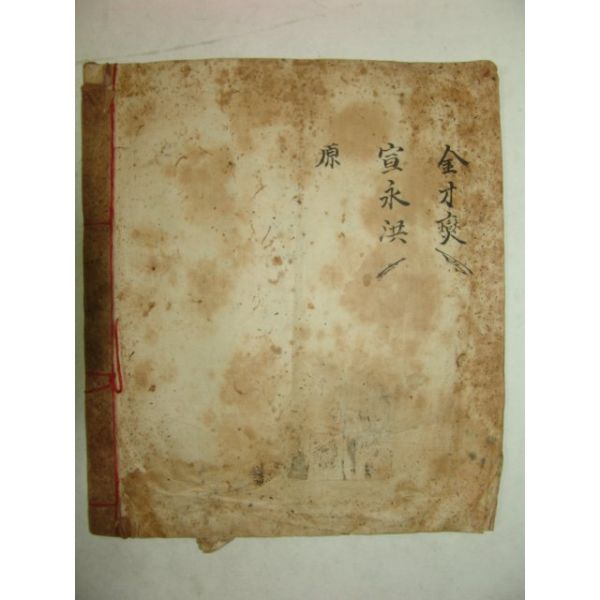 金才燮
宣永洪
原